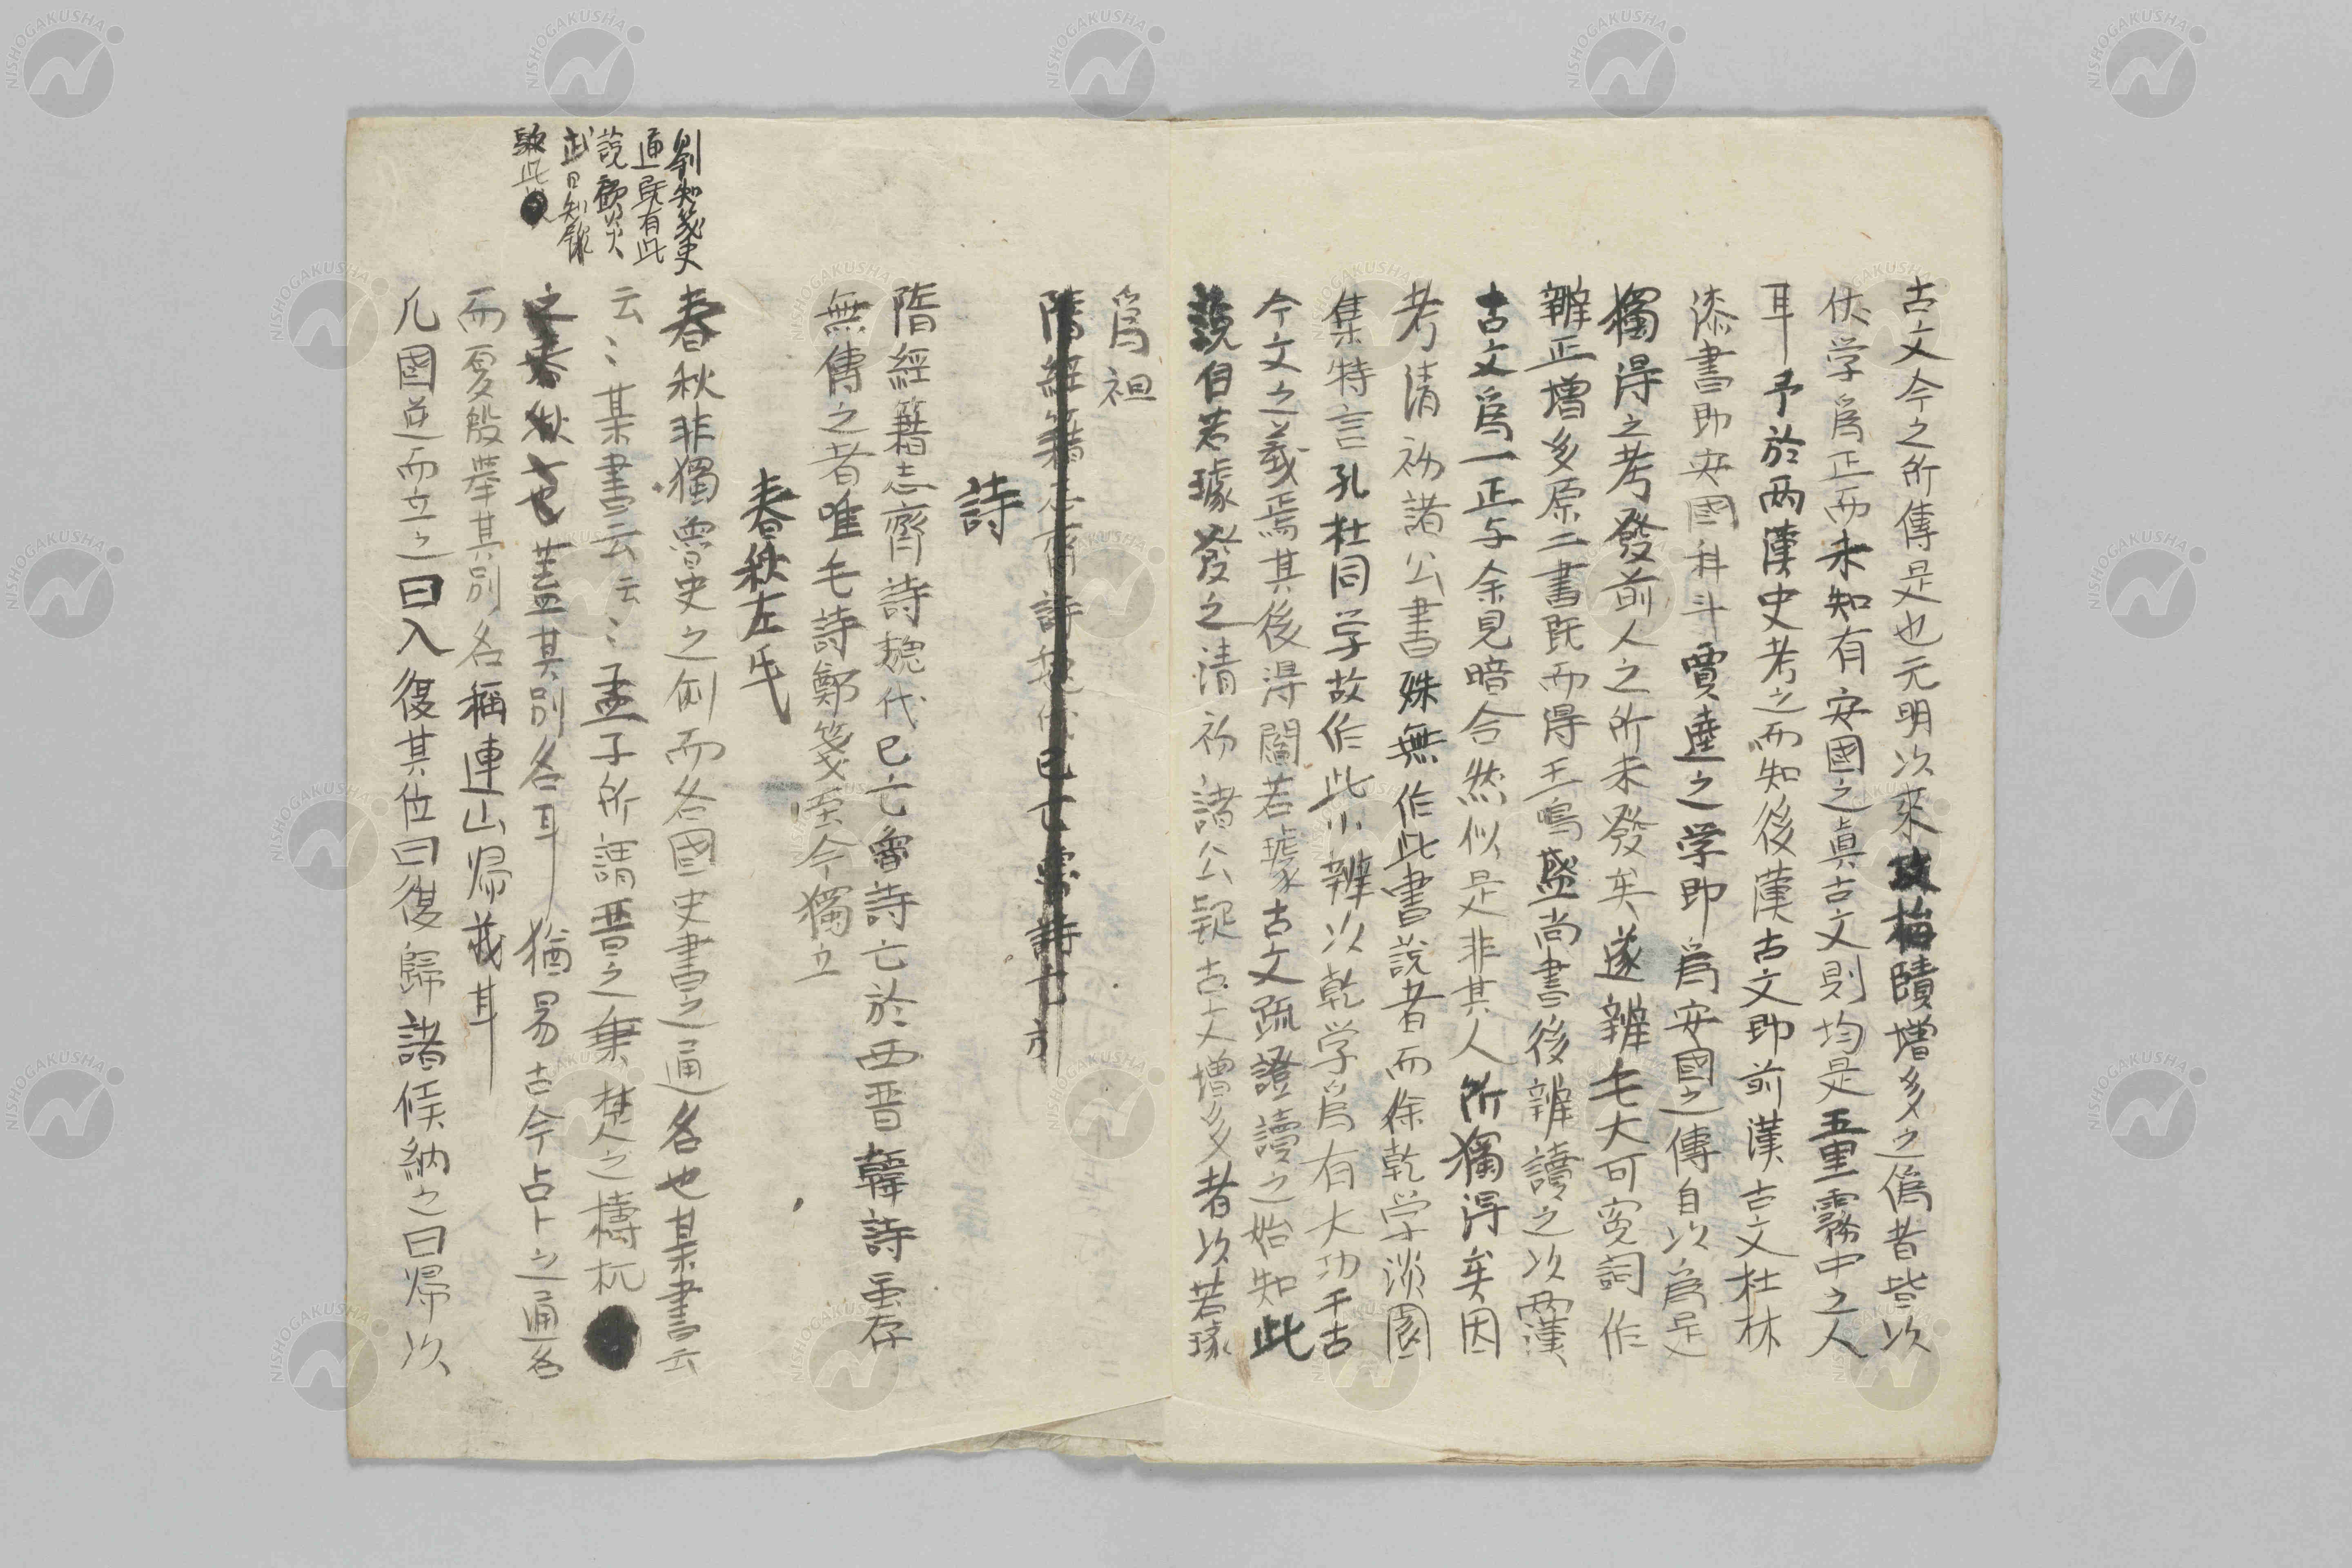 古文今之所傳是也元明以來攻梅賾增多之僞者皆以
伏学爲正而未知有安國之眞古文則均是五里霧中之人
耳予於兩漢史考之而知後漢古文即前漢古文杜林
漆書即安國科斗賈逵之学即爲安國之傳自以爲是
獨得之考發前人之所未發矣遂辨毛大可寃詞作
辨正增多原二書既而得王鳴盛尚書後辨讀之以兩漢
古文爲一正与余見暗合然似是非其人所獨得矣因
考清初諸公書殊無作此書說者而徐乾学淡園
集特言孔杜同学故作此小辨以乾学爲有大功于古
今文之義焉其後得閻若璩古文疏證讀之始知此
說自若璩發之清初諸公疑古文增多者以若璩
爲祖
隋經籍志齊詩魏代已亡魯詩亡亦
詩
隋經籍志齊詩魏代已亡魯詩亡於西晋韓詩雖存
無傳之者唯毛詩鄭箋至今獨立
春秋左氏
春秋非獨魯史之例而各國史書之通名也某書云
云〻某書云云〻孟子所謂晋之乗楚之檮杌
之春秋也蓋其別名耳猶易古今占卜之通名
而夏殷舉其別名稱連山歸藏耳
凡國逆而立之曰入復其位曰復歸諸侯納之曰歸以
劉知幾史
通既有此
說顧炎
武日知錄
駁此